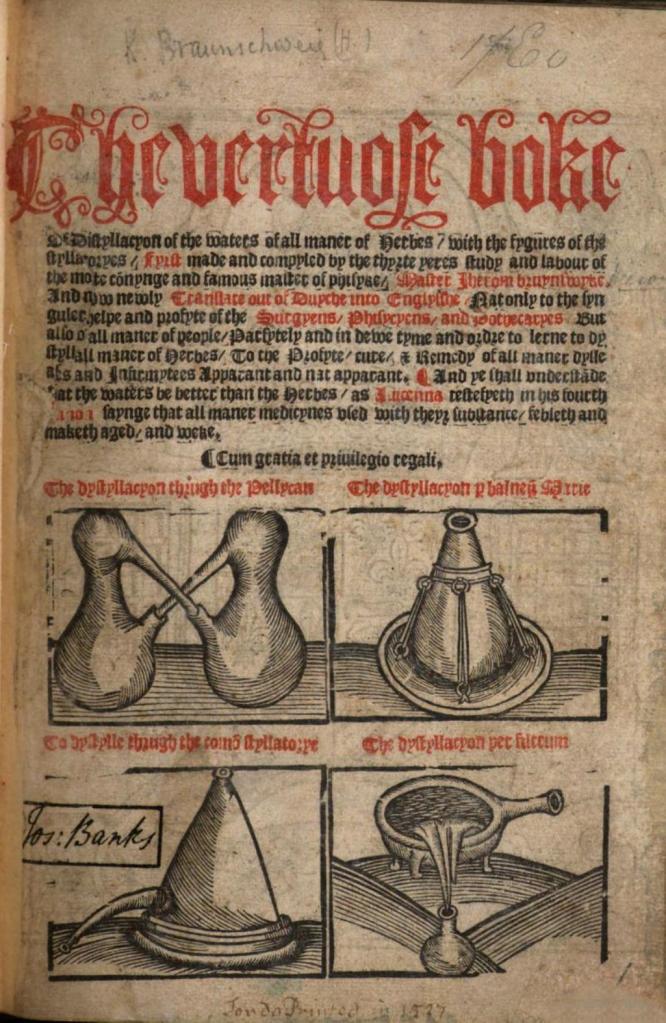 K. Braunschweig (H.)
The vertuose boke
Of Distyllacyon of the waters of all maner of Herbes / with the fygures of the
styllatoryes / Fyrst made and compyled by the thyrte yeres study and labour of
the moste cōnynge and famous master of phisyke / Master Iherom bruynswyke.
And now newly Translate out of Duyche into Englysshe / Nat only to the syn
guler helpe and profyte of the Surgyens / Phisycyens / and Pothecaryes But
also of all maner of people / Parfytely and in dewe tyme and ordre to lerne to dy
styll all maner of Herbes / To the Profyte / cure / & Remedy of all maner dysse
ases and Infirmytees Apparant and nat apparant. ¶ And ye shall vnderstāde
that the waters be better than the Herbes / as Auicenna testefyeth in his fourth
saynge that all maner medicynes vsed with theyr substance / febleth and
maketh aged / and weke.
¶ Cum gratia et priuilegio regali.
The dystyllacyon thrugh the Pellycan The dystyllacyon p balneū Marie
To dystylle thrugh the comō styllatorye The dystyllacyon per filtrum
Jos: Banks
London Printed in 1527